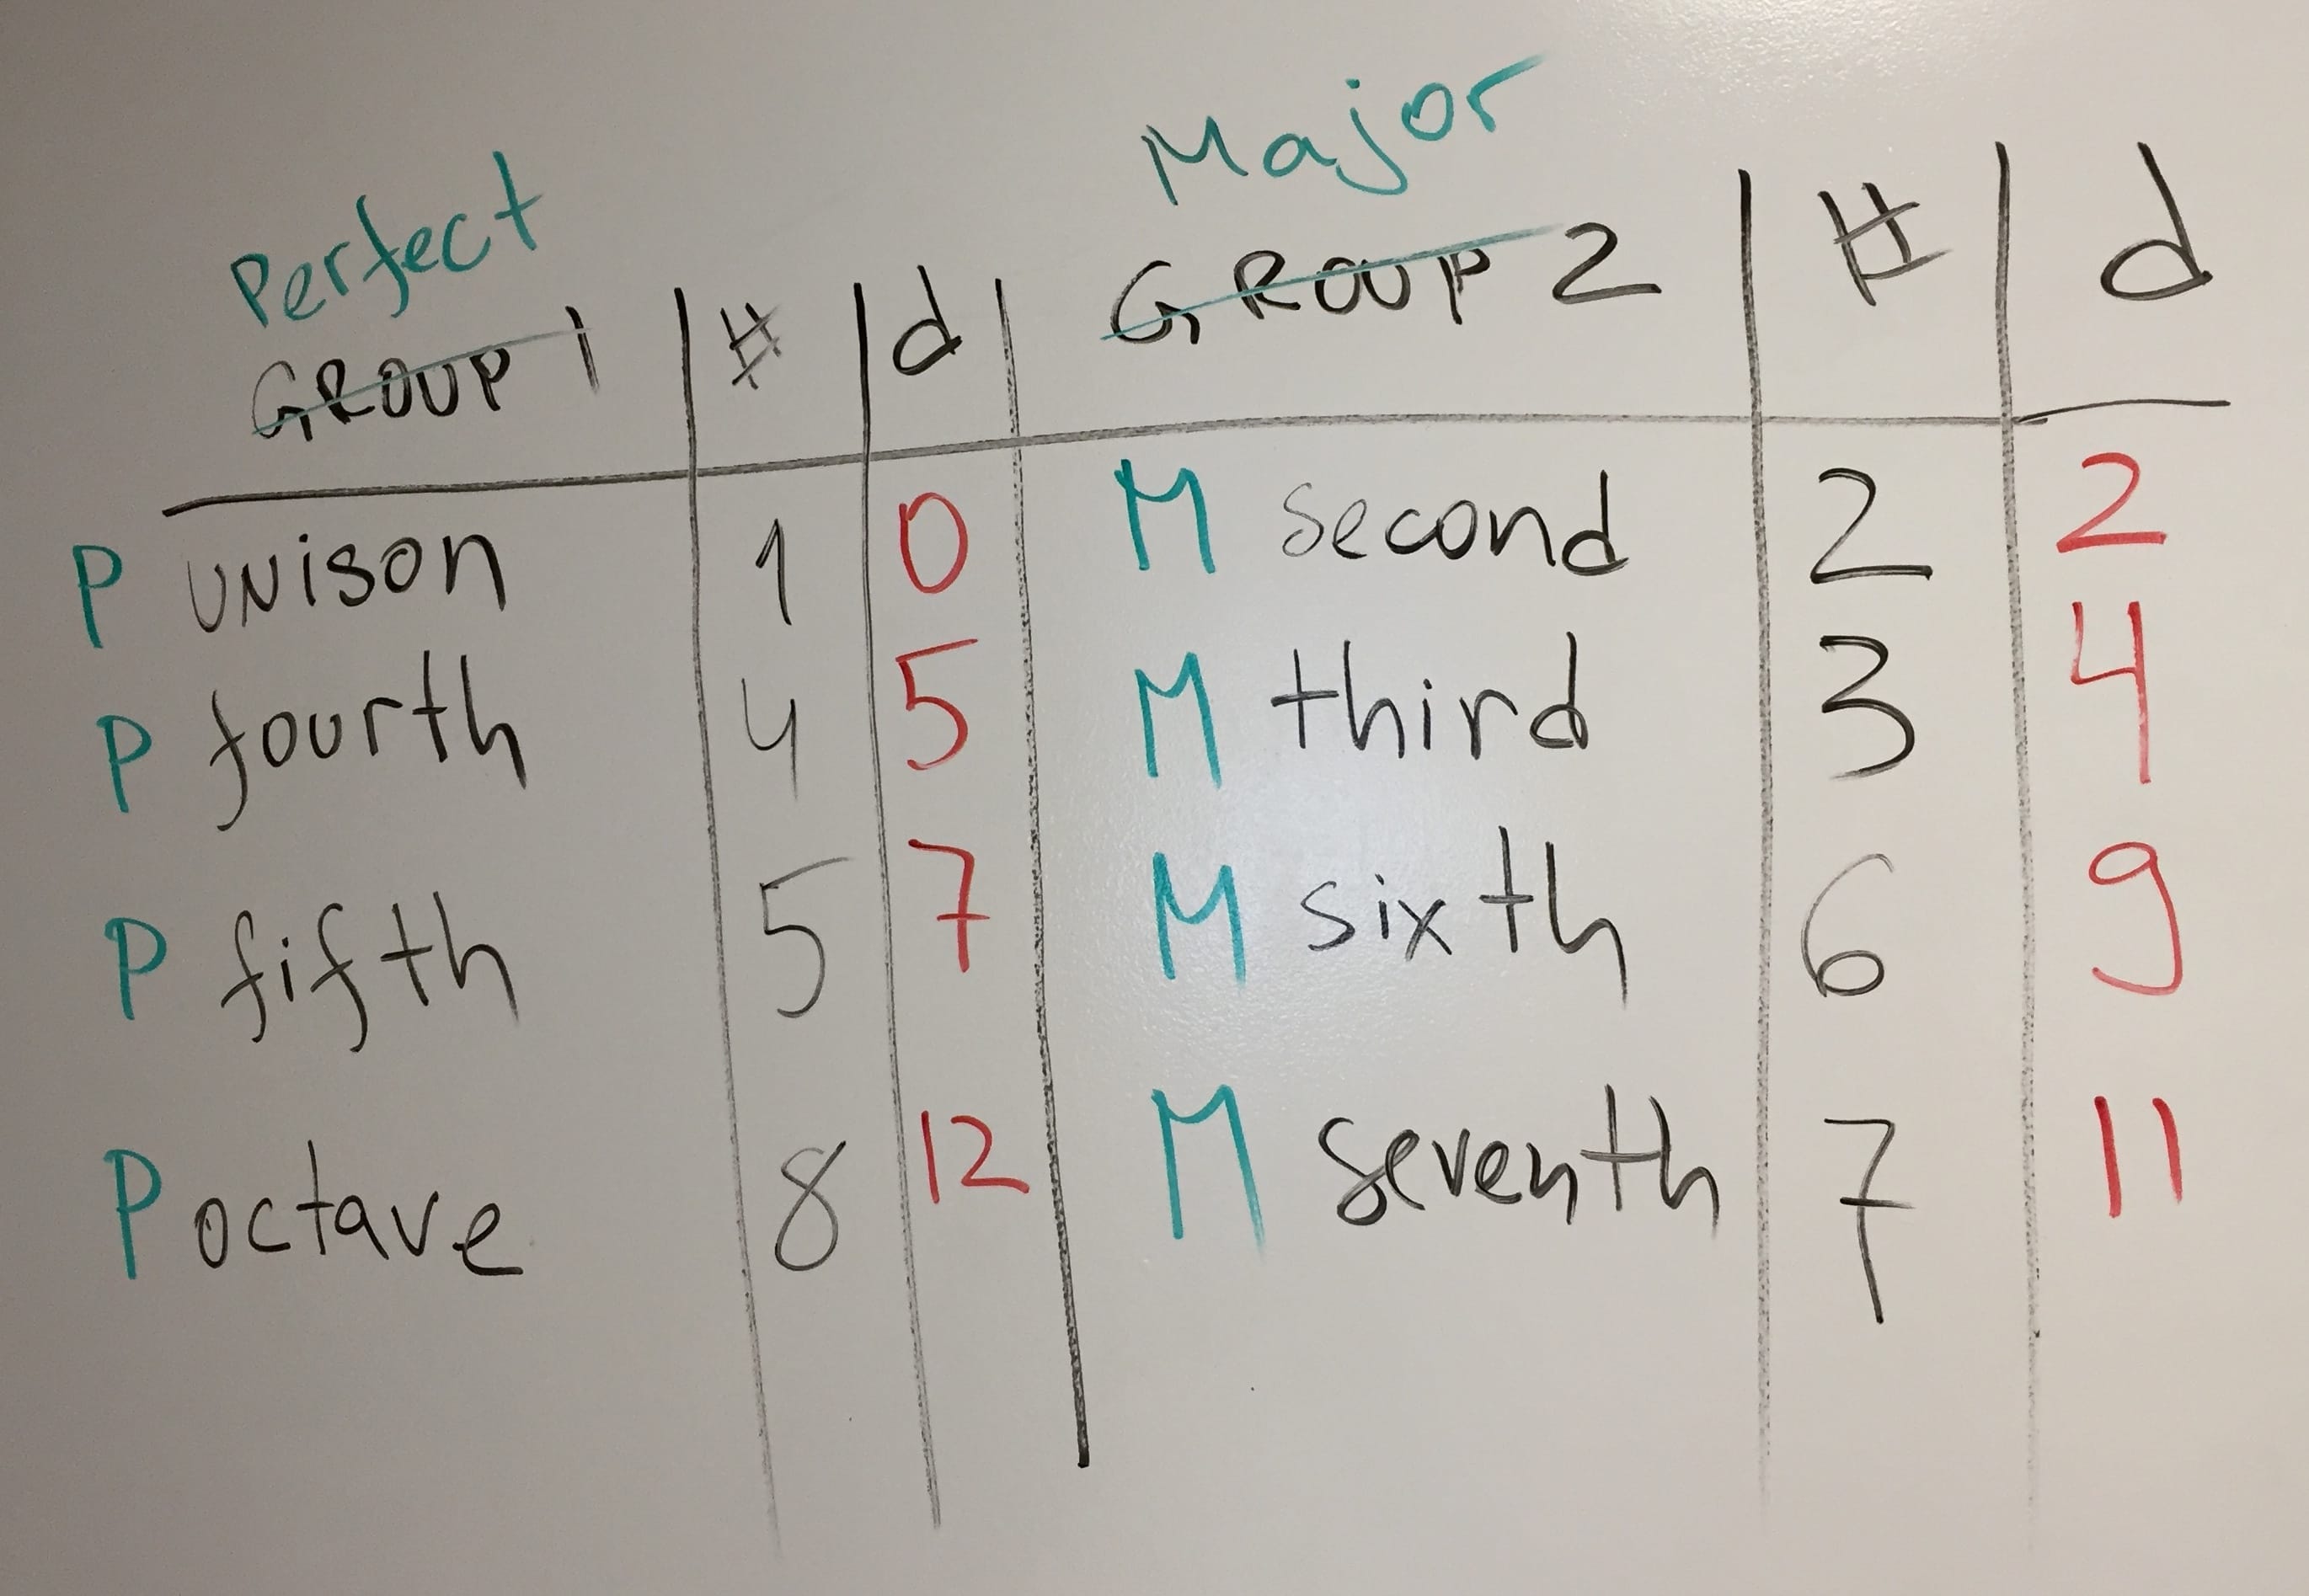 Perfect Major
GROUP 1 # d GROUP 2 # d
P unison 1 0 M second 2 2
P fourth 4 5 M third 3 4
P fifth 5 7 M sixth 6 9
P octave 8 12 M seventh 7 11